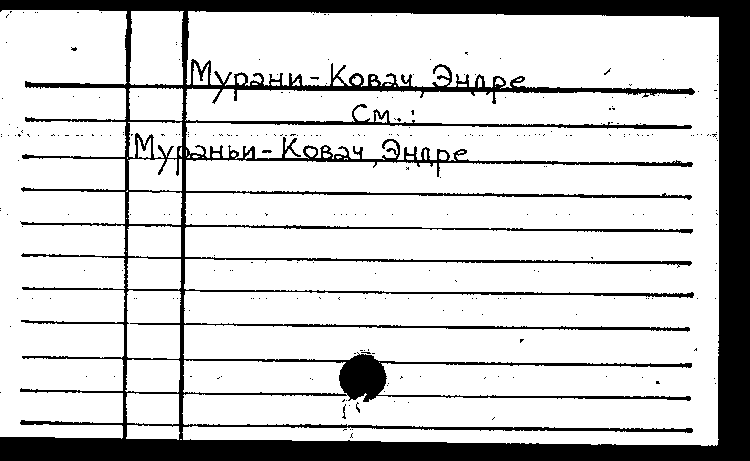 Мурани-Ковач, Эндре
См.:
Мураньи-Ковач, Эндре